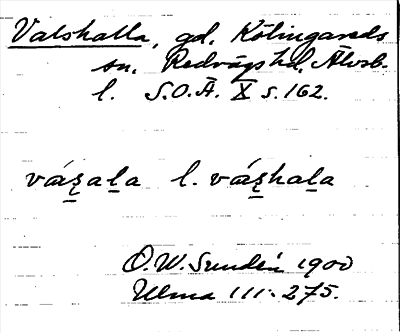 Valshalla, gd, Kölingareds
sn. Redvägs hd, Älvsb.
l. S.O.Ä. X s. 162.
váʂaḻa l. váʂhaḻa
O.W. Sundén 1900
Ulma 111:275.